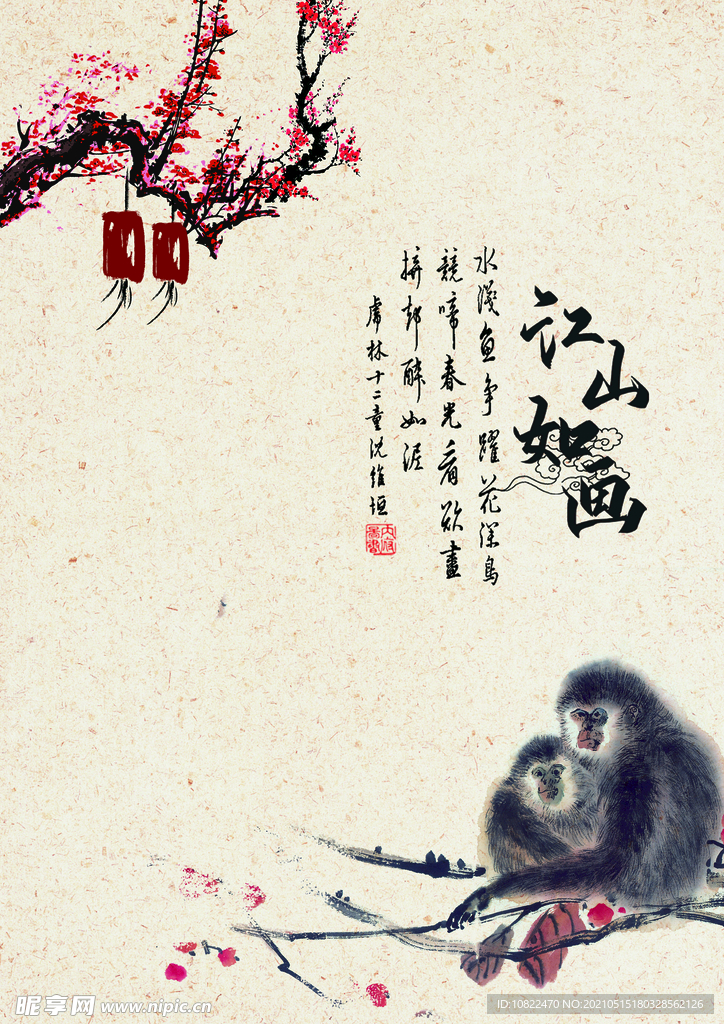 江山如画
水浅鱼争躍花深鳥
競啼春光看欲畫
拚却醉如泥
虞林十二童沈維垣
昵享网 www.nipic.cn
ID:10822470 NO:20210515180328562126